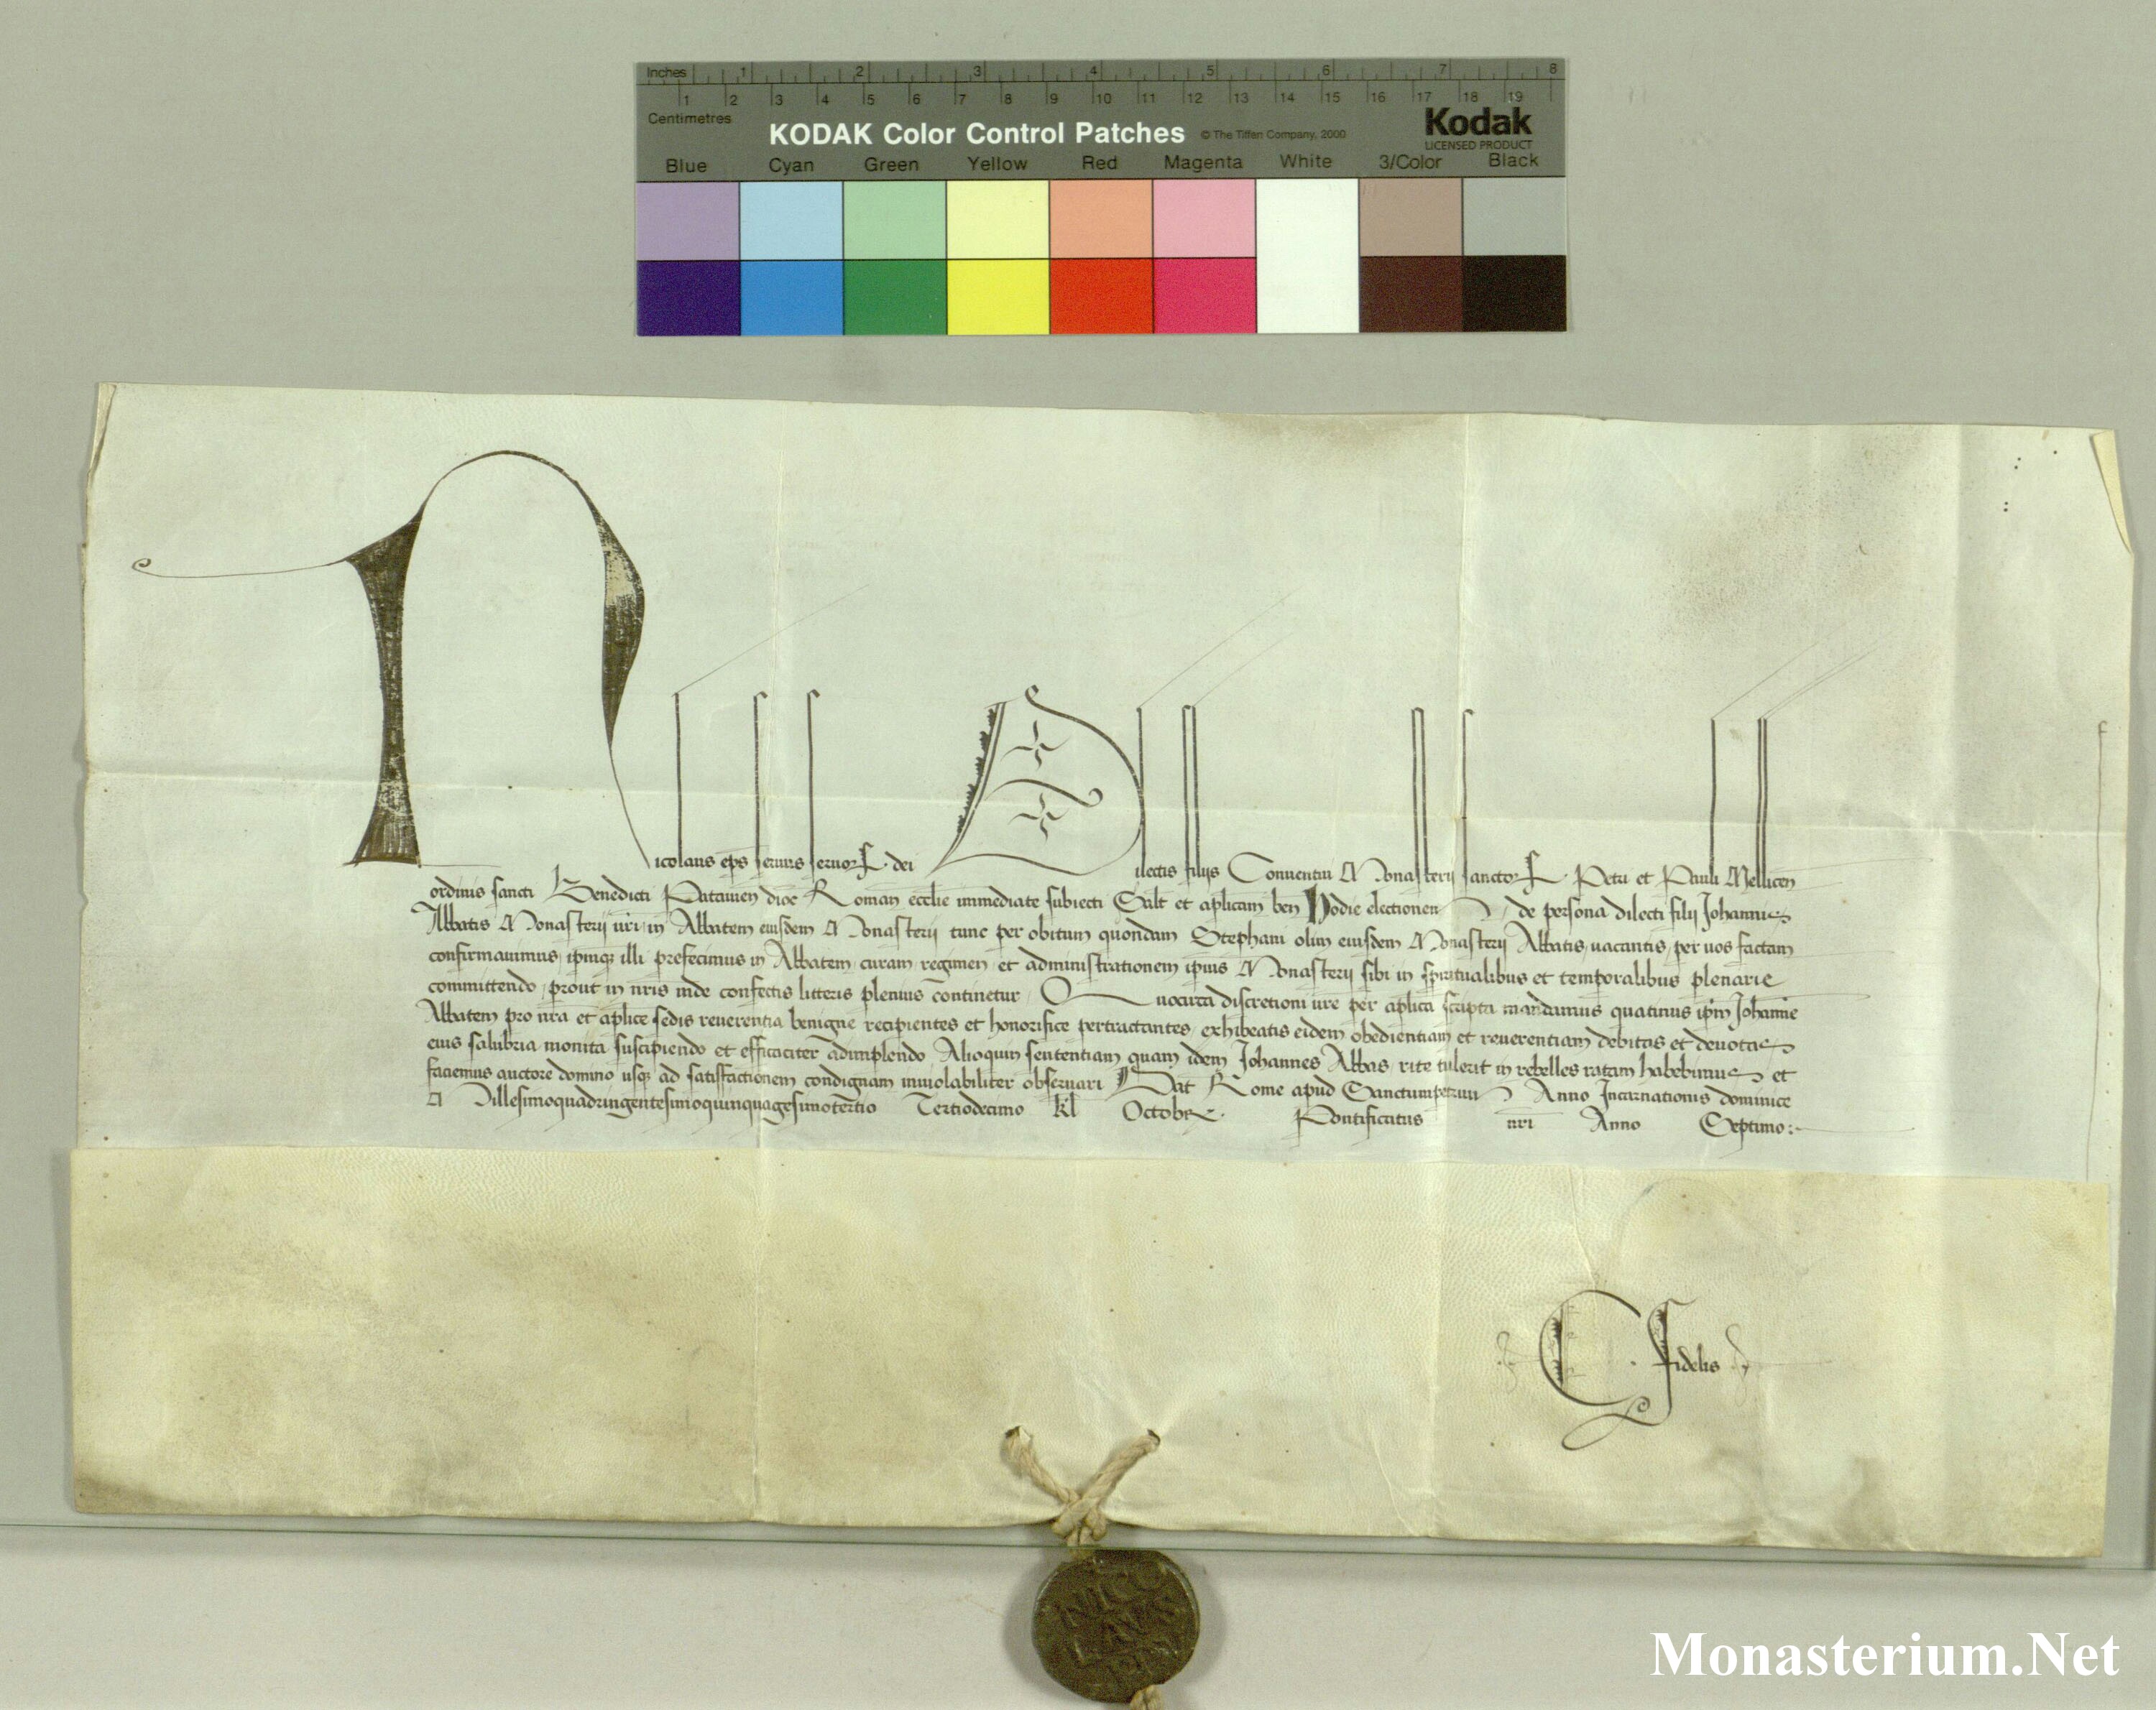 Inches 1 2 3 4 5 6 7 8
1 2 3 4 5 6 7 8 9 10 11 12 13 14 15 16 17 18 19
Centimetres
KODAK Color Control Patches © The Tiffen Company, 2000 Kodak
LICENSED PRODUCT
Blue Cyan Green Yellow Red Magenta White 3/Color Black
Nicolaus eps seruus seruor dei Dilectis filijs Conuentui Monasterij sanctor Petri et Pauli Mellicen
ordinis sancti Benedicti Patauien dioc Roman ecclie immediate subiecti Salt et aplicam ben Hodie electionem de persona dilecti filij Johannis
Abbatis Monasterij uri in Abbatem eiusdem Monasterij tunc per obitum quondam Stephani olim eiusdem Monasterij Abbatis uacantis per uos factam
confirmauimus ipmqz illi prefecimus in Abbatem curam regimen et administrationem ipius Monasterij sibi in spiritualibus et temporalibus plenarie
committendo prout in nris inde confectis litteris plenius continetur Quocirca discretioni ure per aplica scripta mandamus quatinus ipm Johanne
Abbatem pro nra et aplice sedis reuerentia benigne recipientes et honorifice pertractantes exhibeatis eidem obedientiam et reuerentiam debitas et deuotas
eius salubria monita suscipiendo et efficaciter adimplendo Alioquin sententiam quam idem Johannes Abbas rite tulerit in rebelles ratam habebimus et
faciemus auctore domino usqz ad satisfactionem condignam inuiolabiliter obseruari Dat Rome apud Sanctumpetrum Anno Incarnationis dominice
Millesimoquadringentesimoquinquagesimotertio Tertiodecimo kl Octobr Pontificatus nri Anno Septimo
C. Fidelis
NICO
LAVS
Monasterium.Net